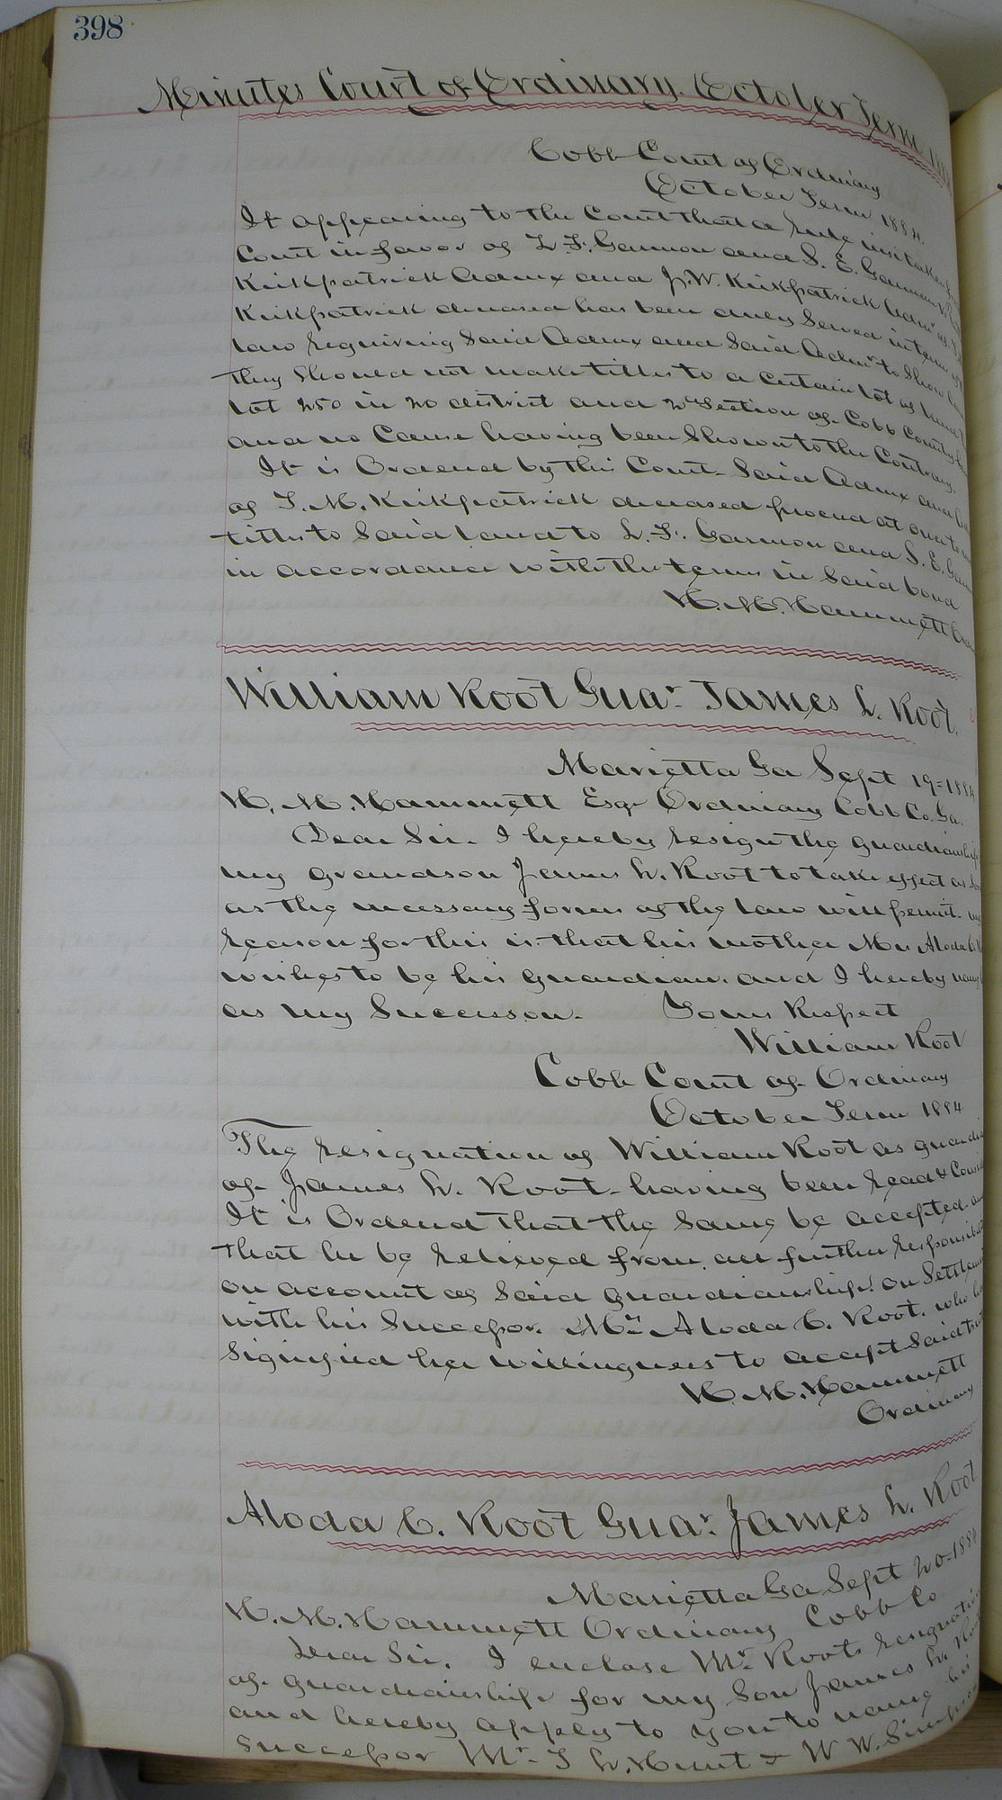 398
Minutes Court of Ordinary. October Term
Cobb Court of Ordinary
October Term 1884.
It appearing to the Court that a Rule nisi taken
Court in favor of L. F. Gannon and S. E. Gannon
Kirkpatrick Admx and J. W. Kirkpatrick Admr of
Kirkpatrick deceased has been duly served in terms of
law requiring said Admx and said Admr to Show
they should not make titles to a certain lot of land
lot 250 in 20 district and 2d Section of Cobb County
and no Cause having been Shown to the Contrary.
It is Ordered by this Court Said Admx and
of T. M. Kirkpatrick deceased proceed at once to
titles to Said land to L. F. Gannon and S. E.
in accordance with the terms in said bond
H. M. Hammett
William Root Guar. James L. Root.
Marietta Ga Sept 19=1884
H. M. Hammett Esqr Ordinary Cobb Co. Ga.
Dear Sir. I hereby resign the guardianship
my grandson James L. Root to take effect as
as the necessary forms of the law will permit.
reason for this is that his mother Mrs Aloda C.
wishes to be his guardian. and I hereby
as my Successor. Yours Respect
William Root
Cobb Court of Ordinary
October Term 1884
The resignation of William Root as
of James L. Root having been read &
It is Ordered that the same be accepted
that he be relieved from all further
on account of said guardianship. on
with his Successor. Mrs Aloda C. Root. who
Signified her willingness to accept said
H. M. Hammett
Ordinary
Aloda C. Root Guar. James L. Root
Marietta Ga Sept 20=1884
H. M. Hammett Ordinary Cobb Co
Dear Sir. I enclose Mr. Roots resignation
of guardianship for my son James L.
and hereby apply to you to name his
Successor Mr. T L. Hunt & W W.